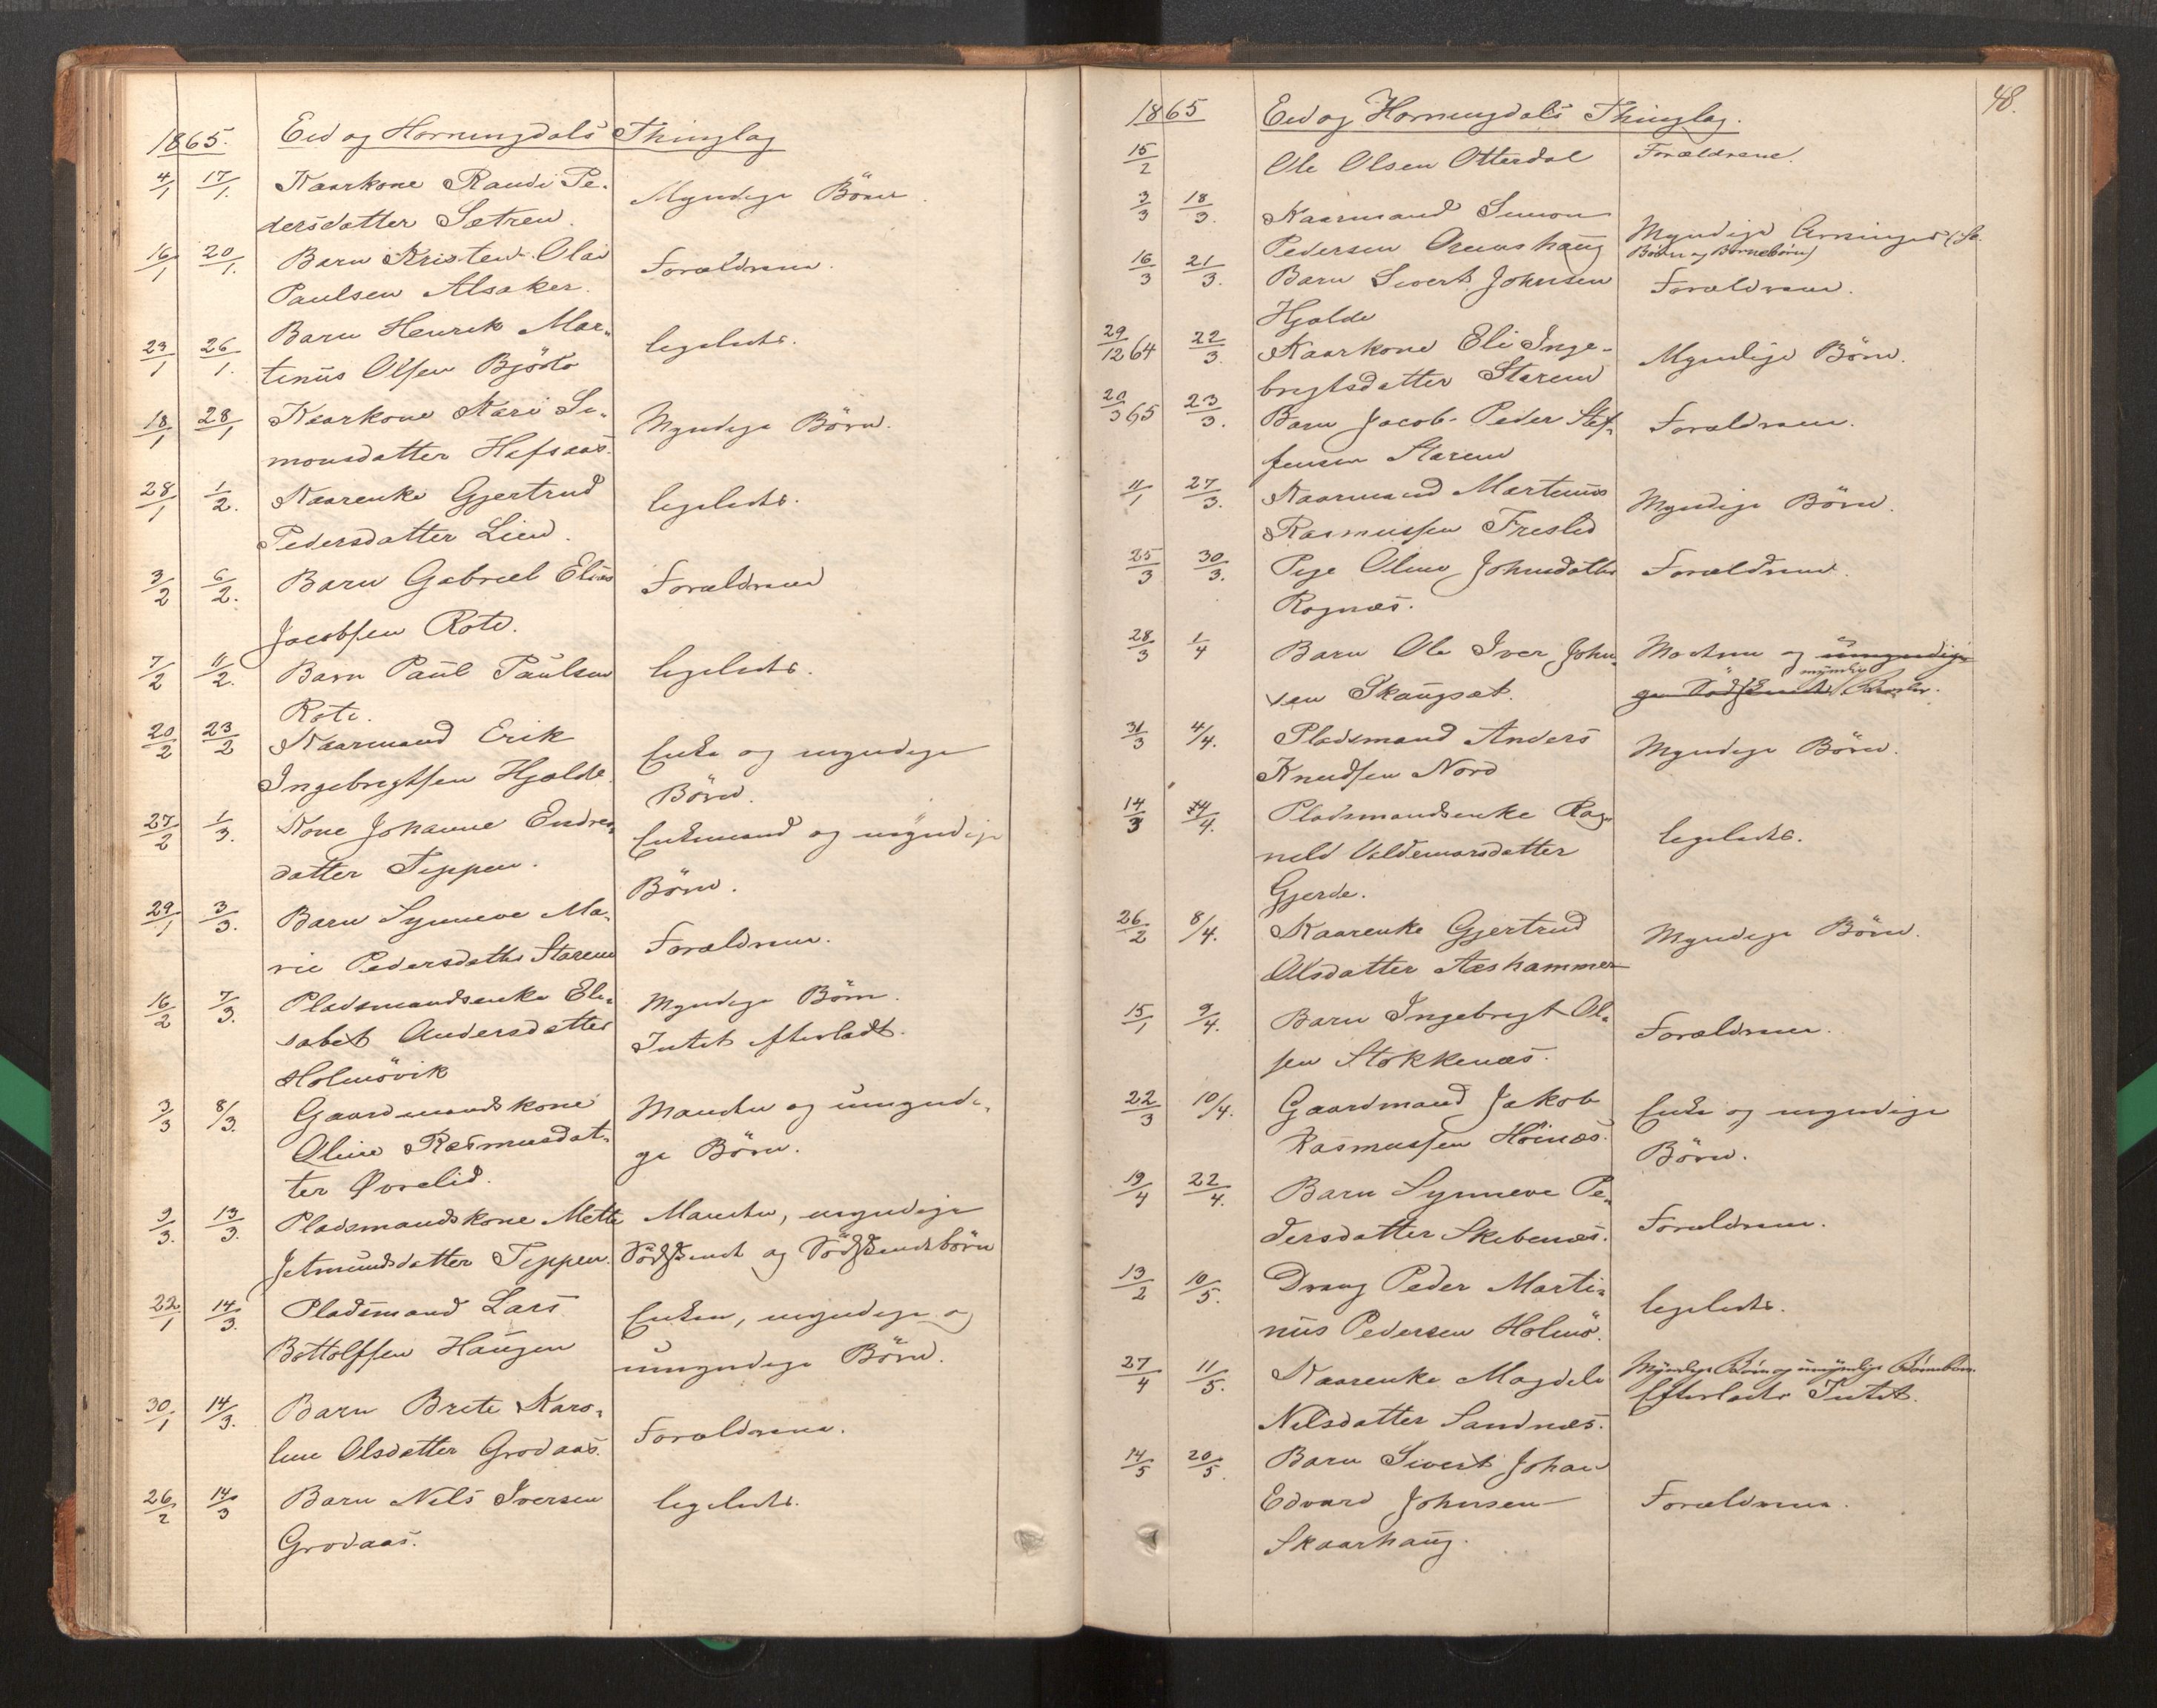 1865. Eid og Horningdals Thinglag
4/1 17/1. Kaarkone Randi Pe-
dersdatter Sætren. Myndige Börn.
16/1 20/1. Barn Kristen Olai
Paulsen Alsaker. Forældrene.
23/1 26/1. Barn Henrik Mar-
tinus Olsen Bjørlo ligeledes.
18/1 28/1 Kaarkone Kari Si-
monsdatter Hafsaas. Myndige Börn.
28/1 1/2. Kaarenke Gjertrud
Pedersdatter Lien. ligeledes.
3/2 6/2. Barn Gabriel Elias Forældrene
Jacobsen Rote.
7/2 11/2. Barn Paul Paulsen ligeledes.
Rote.
20/2 23/2 Kaarmand Erik
Ingebrigtsen Hjelde. Enke og myndige
Börn.
27/2 1/3. Kone Johanne Endres- Enkemand og myndige
datter Teppen. Börn.
29/1 3/3. Barn Synneve Ma-
rie Pedersdatter Staren Forældrene.
16/2 7/3. Pladsmandsenke Eli- Myndige Börn.
sabet Andersdatter Intet efterladt.
Holmövik
3/3 8/3. Gaardmandskone Manden og umyndi-
Oline Rasmusdat- ge Börn.
ter Øvrelid.
9/3. 13/3. Pladsmandskone Mette Manden, myndige
Jetmundsdatter Teppen. Södskend og Södskendebörn
22/1 14/3. Pladsmand Lars Enken, myndige og
Bottolfsen Haugen umyndige Börn.
30/1 14/3. Barn Brite Karo-
line Olsdatter Grodaas. Forældrene.
26/2 14/3 Barn Nils Iversen ligeledes.
Grodaas.
48.
1865 Eid og Horningdals Thinglag.
15/2 Ole Olsen Otterdal Forældrene.
3/3 18/3. Kaarmand Simon
Pedersen Myndige Arvinger
Börn og Börnebörn)
16/3 21/3. Barn Sivert Johnsen Forældrene.
Hjelde
29/12 64 22/3. Kaarkone Eli Inge- Myndige Börn.
brigtsdatter Staren
20/3 65 23/3. Barn Jacob Peder Stef- Forældrene.
fensen Staren
11/1 27/3. Kaarmand Martinus Myndige Börn.
Rasmussen Frislid
25/3 30/3. Pige Oline Johnsdatter Forældrene.
Rognæs.
28/3 1/4 Barn Ole Iver John- Modren og umyndige
sen Skaugsæt. myndige
31/3 4/4. Pladsmand Anders Myndige Börn.
Knudsen Nord
14/3 4/4. Pladsmandsenke Rag-
nild Valdemarsdatter ligeledes.
Gjerde.
26/2 8/4. Kaarenke Gjertrud Myndige Börn.
Olsdatter Aashammer
15/1 9/4. Barn Ingebrigt Ol- Forældrene.
sen Stokkenæs.
22/3 10/4. Gaardmand Jakob Enke og myndige
Rasmussen Höinæs. Börn.
19/4 22/4. Barn Synneve Pe-
dersdatter Skibenæs. Forældrene.
13/2 10/5. Dreng Peder Marti-
nus Pedersen Holmö. ligeledes.
27/4 11/5. Kaarenke Magdele Myndige Börn og umyndige Börnebörn.
Nilsdatter Sandnæs. Efterladte Intet.
14/5 20/5. Barn Sivert Johan
Edvard Johnsen Forældrene.
Skaarhaug.